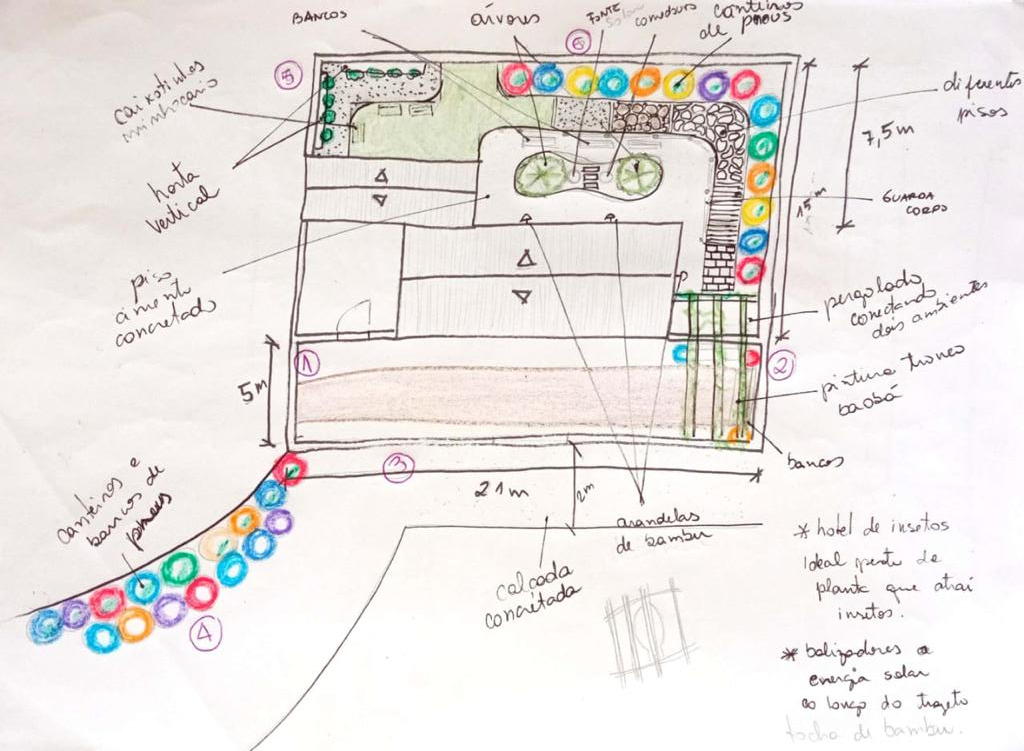 BANCOS
árvores
FONTE
solar
comedouro
canteiros
de pneus
6
5
caixotinhos
minhocário
diferentes
pisos
7,5m
15m
horta
vertical
GUARDA
CORPO
piso
cimento
concretado
pergolado
conectando
dois ambientes
1
2
5m
pintura tronco
baobá
bancos
3
21m
2m
canteiros e
bancos de
pneus
arandelas
de bambu
calçada
concretada
4
* hotel de insetos
ideal perto de
planta que atrai
insetos.
* balizadores a
energia solar
ao longo do trajeto
tocha de bambu.